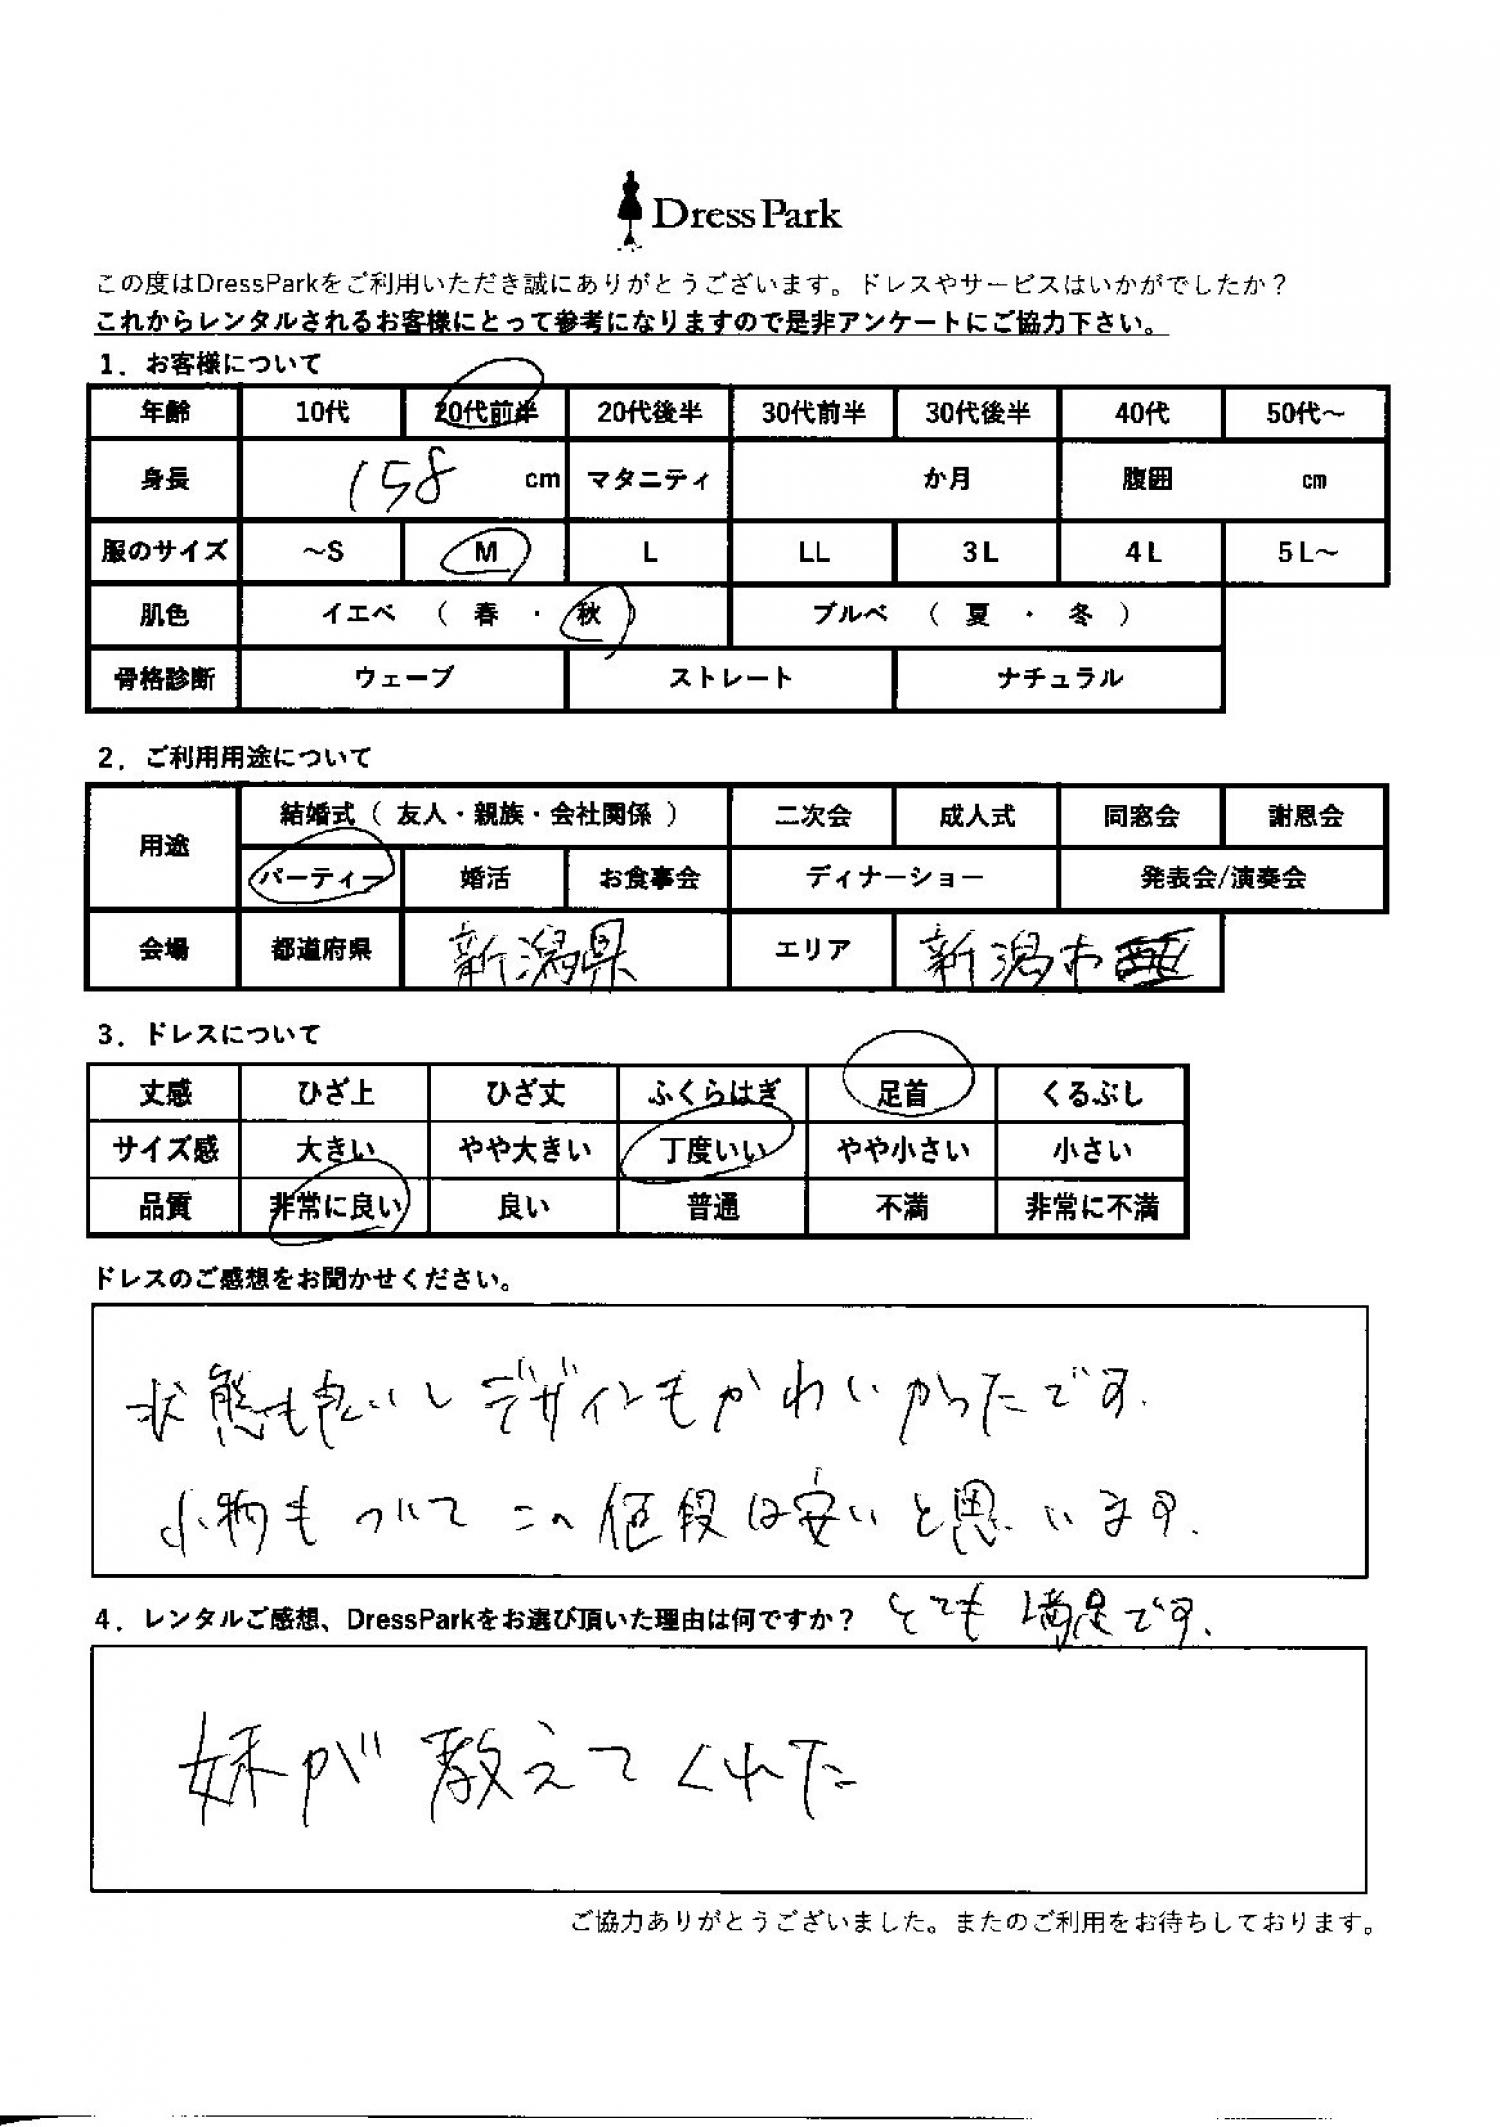 DressPark
この度はDressParkをご利用いただき誠にありがとうございます。ドレスやサービスはいかがでしたか？
これからレンタルされるお客様にとって参考になりますので是非アンケートにご協力下さい。
1. お客様について
年齢 10代 20代前半 20代後半 30代前半 30代後半 40代 50代～
身長 158 cm マタニティ か月 腹囲 cm
服のサイズ ～S M L LL 3L 4L 5L～
肌色 イエベ （ 春 ・ 秋 ） ブルベ （ 夏 ・ 冬 ）
骨格診断 ウェーブ ストレート ナチュラル
2. ご利用用途について
用途 結婚式（ 友人・親族・会社関係 ） 二次会 成人式 同窓会 謝恩会
パーティー 婚活 お食事会 ディナーショー 発表会/演奏会
会場 都道府県 新潟県 エリア 新潟市
3. ドレスについて
丈感 ひざ上 ひざ丈 ふくらはぎ 足首 くるぶし
サイズ感 大きい やや大きい 丁度いい やや小さい 小さい
品質 非常に良い 良い 普通 不満 非常に不満
ドレスのご感想をお聞かせください。
状態も良いしデザインもかわいかったです.
小物もついてこの値段は安いと思います.
とても満足です.
4. レンタルご感想、DressParkをお選び頂いた理由は何ですか？
妹が教えてくれた
ご協力ありがとうございました。またのご利用をお待ちしております。